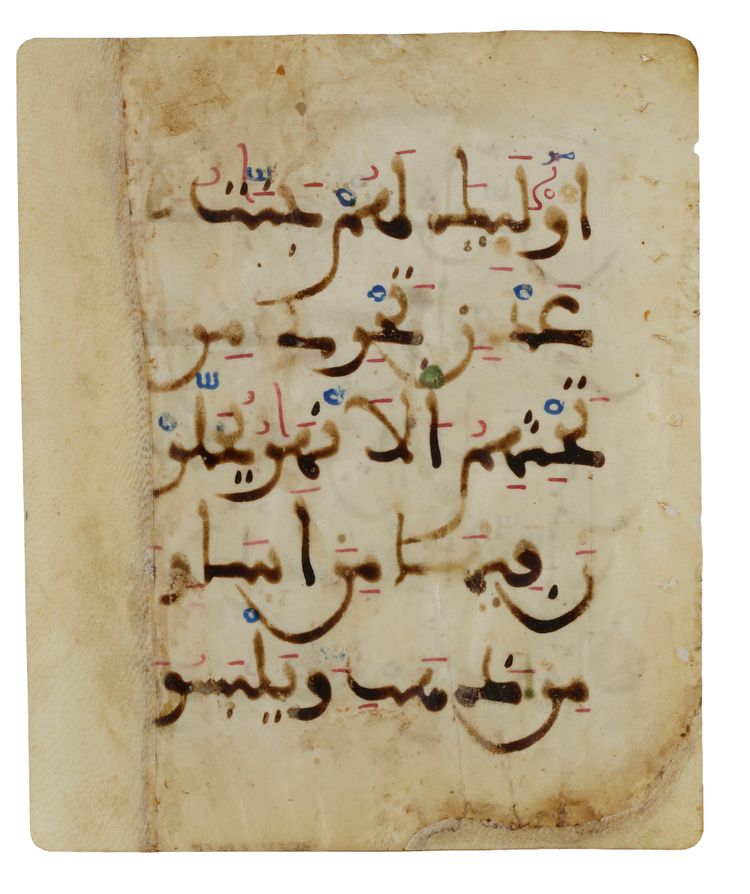 اولئك لهم جنت
عدن تجري من
تحتهم الانهر يحلو
ن فيها من اساور
من ذهب ويلبسو